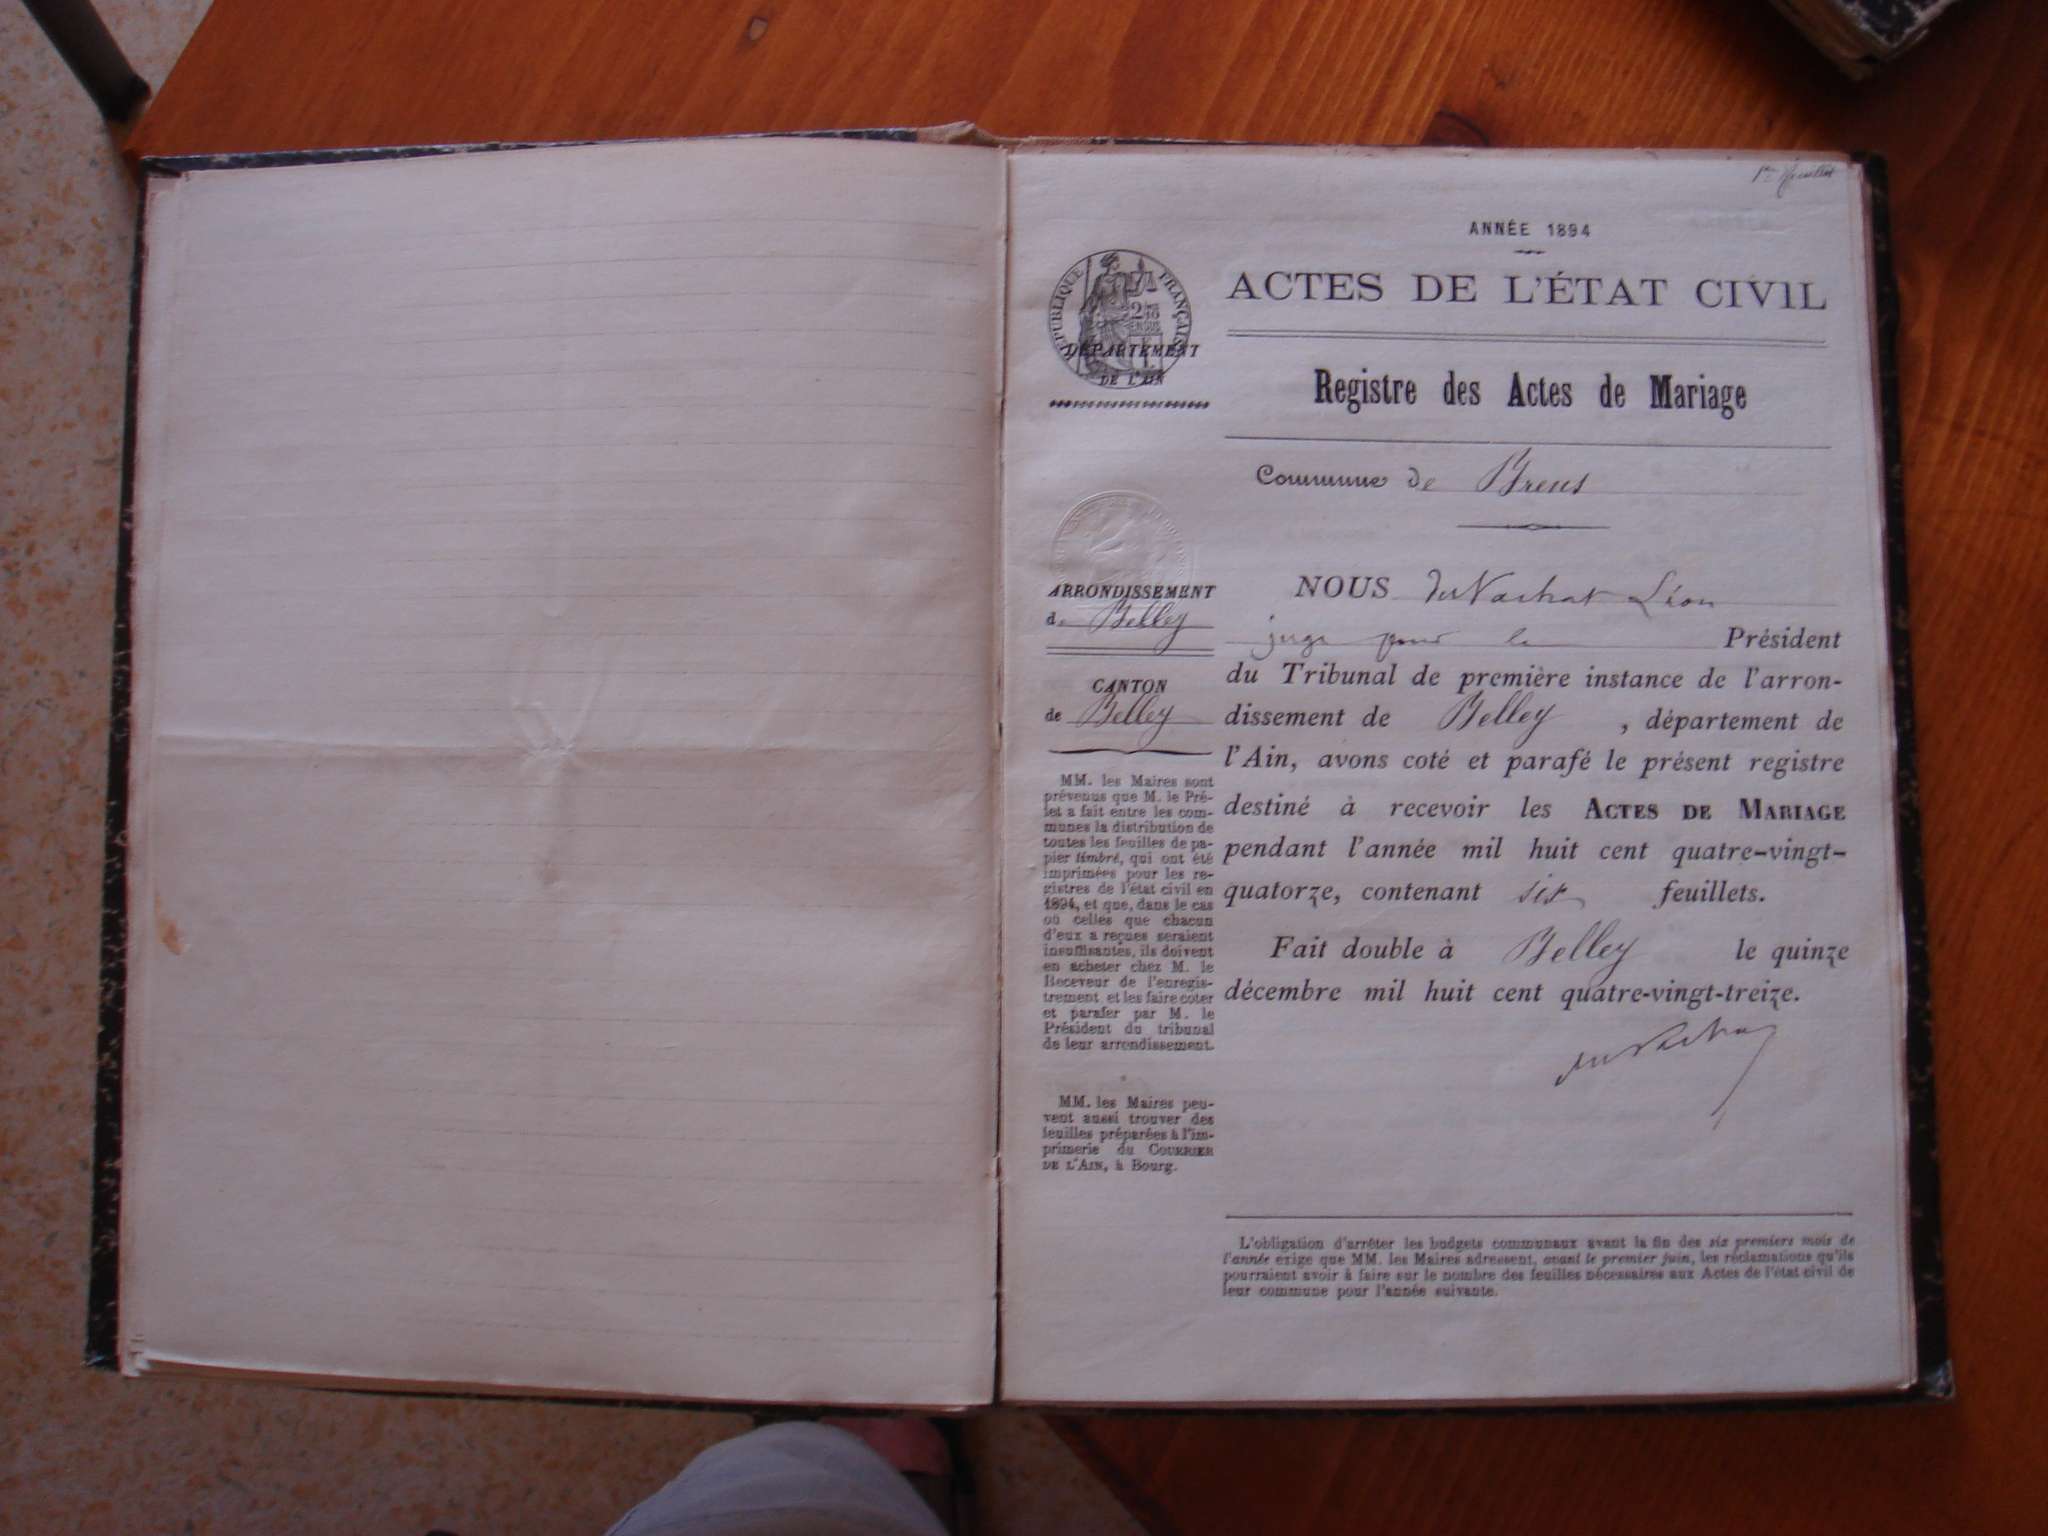 1er feuillet
ANNÉE 1894
ACTES DE L'ÉTAT CIVIL
Registre des Actes de Mariage
Commune de Brens
RÉPUBLIQUE FRANÇAISE
DÉPARTEMENT
DE L'AIN
ARRONDISSEMENT
de Belley
CANTON
de Belley
MM. les Maires sont
prévenus que M. le Pré-
fet a fait entre les com-
munes la distribution de
toutes les feuilles de pa-
pier timbré, qui ont été
imprimées pour les re-
gistres de l'état civil en
1894, et que, dans le cas
où celles que chacun
d'eux a reçues seraient
insuffisantes, ils doivent
en acheter chez M. le
Receveur de l'enregis-
trement et les faire coter
et parafer par M. le
Président du tribunal
de leur arrondissement.
MM. les Maires peu-
vent aussi trouver des
feuilles préparées à l'im-
primerie du COURRIER
DE L'AIN, à Bourg.
NOUS du Nachat Léon
juge pour le Président
du Tribunal de première instance de l'arron-
dissement de Belley, département de
l'Ain, avons coté et parafé le présent registre
destiné à recevoir les ACTES DE MARIAGE
pendant l'année mil huit cent quatre-vingt-
quatorze, contenant six feuillets.
Fait double à Belley le quinze
décembre mil huit cent quatre-vingt-treize.
L'obligation d'arrêter les budgets communaux avant la fin des six premiers mois de
l'année exige que MM. les Maires adressent, avant le premier juin, les réclamations qu'ils
pourraient avoir à faire sur le nombre des feuilles nécessaires aux Actes de l'état civil de
leur commune pour l'année suivante.